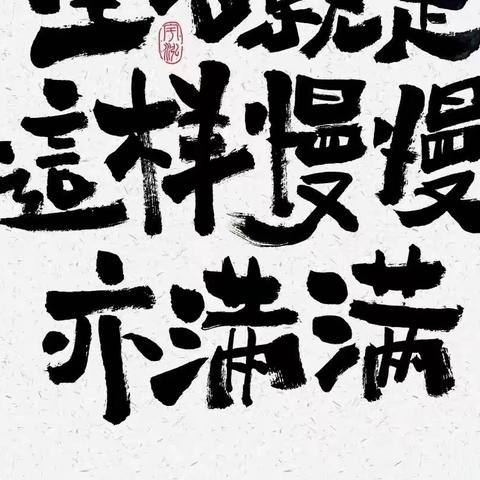 生活就是
這样慢慢
亦满满